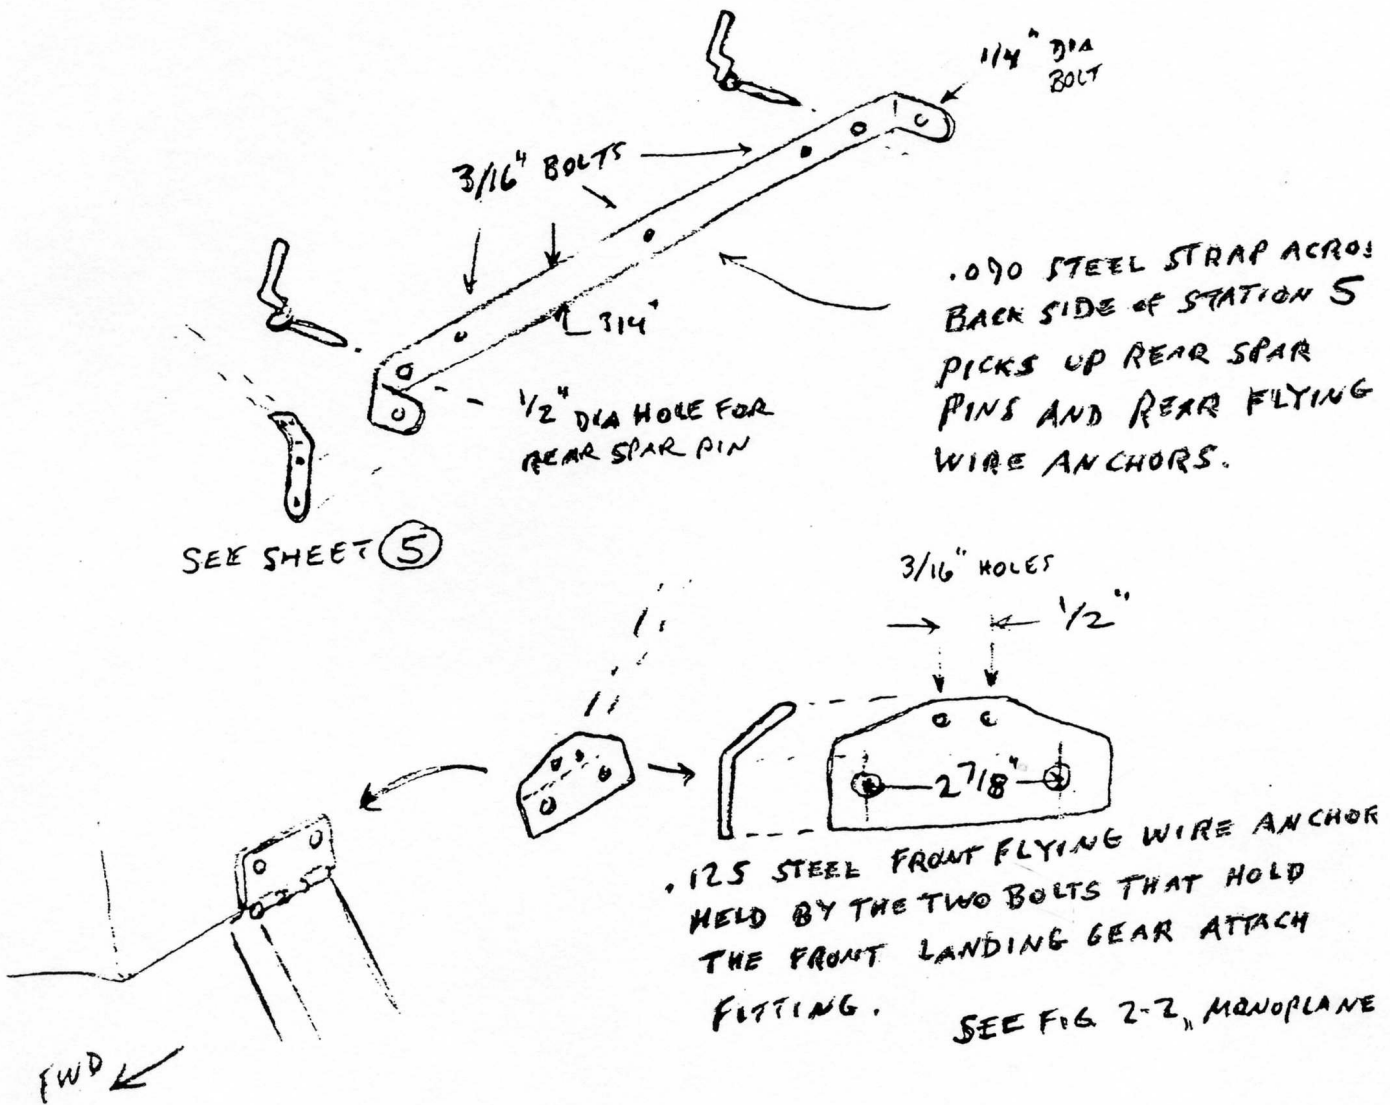 1/4" DIA
BOLT
3/16" BOLTS
3/4"
1/2" DIA HOLE FOR
REAR SPAR PIN
.090 STEEL STRAP ACROS
BACK SIDE OF STATION 5
PICKS UP REAR SPAR
PINS AND REAR FLYING
WIRE ANCHORS.
SEE SHEET 5
3/16" HOLES
1/2"
2 7/8"
.125 STEEL FRONT FLYING WIRE ANCHOR
HELD BY THE TWO BOLTS THAT HOLD
THE FRONT LANDING GEAR ATTACH
FITTING.
SEE FIG 2-2, MONOPLANE
FWD